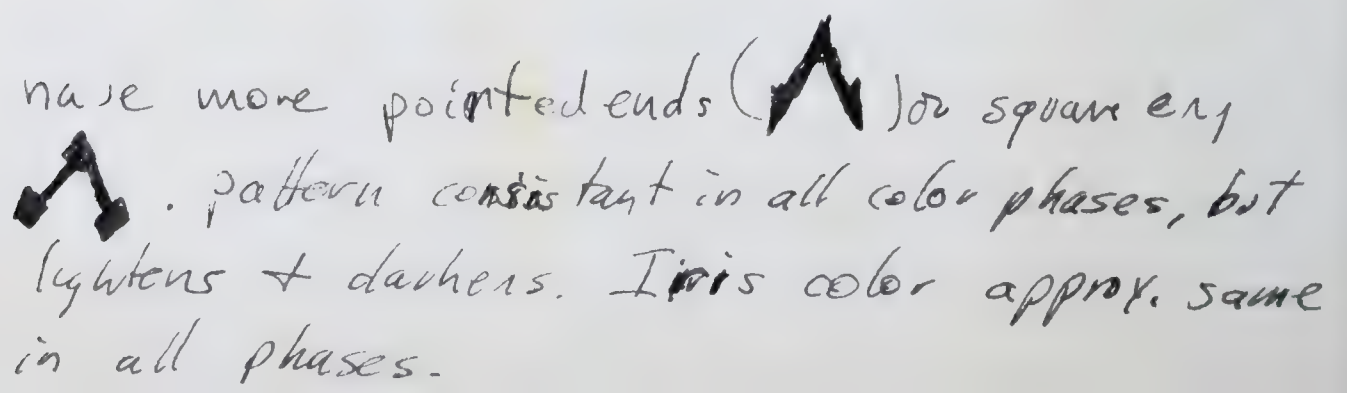 have more pointed ends ( ) or square end
. pattern consistant in all color phases, but
lightens + darkens. Iris color approx. same
in all phases.